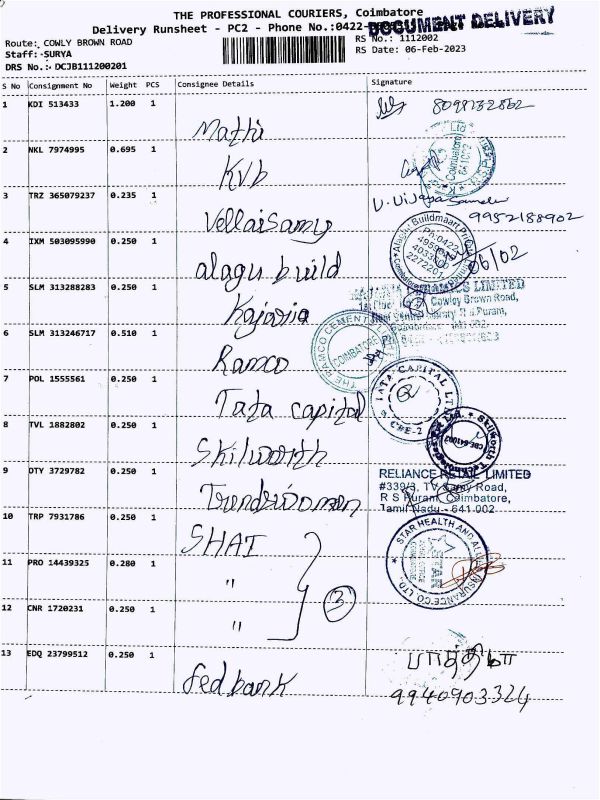 THE PROFESSIONAL COURIERS, Coimbatore
Delivery Runsheet - PC2 - Phone No.:0422-
DOCUMENT DELIVERY
Route: COWLY BROWN ROAD
RS No.: 1112002
Staff:-SURYA
RS Date: 06-Feb-2023
DRS No.:- DCJB111200201
S No Consignment No Weight PCS Consignee Details Signature
1 KDI 513433 1.200 1 Mathi 8098132862
2 NKL 7974995 0.695 1 KVb
Coimbatore 641002
3 TRZ 365079237 0.235 1 Vellaisamy 9952188902
4 IXM 503095990 0.250 1 alagu build
Alashi Buildmaart Ph:0422 2272201 06/02
5 SLM 313288283 0.250 1 Kajaria
LIMITED
Cowley Brown Road,
R.S.Puram,
6 SLM 313246717 0.510 1 Ramco
THE RAMCO CEMENTS COIMBATORE
7 POL 1555561 0.250 1 Tata capital
TATA CAPITAL LTD CBE-2
8 TVL 1882802 0.250 1 Skilworth
Skilworth
9 OTY 3729782 0.250 1 Trendswoman
RELIANCE RETAIL LIMITED
#339/3, TV Samy Road,
R S Puram, Coimbatore,
Tamil Nadu - 641 002
10 TRP 7931786 0.250 1 SHAI
11 PRO 14439325 0.280 1 "
STAR HEALTH AND ALLIED INSURANCE CO LTD., STAR
12 CNR 1720231 0.250 1 " 3
13 EDQ 23799512 0.250 1 fed bank
பாத்திமா
9940903324